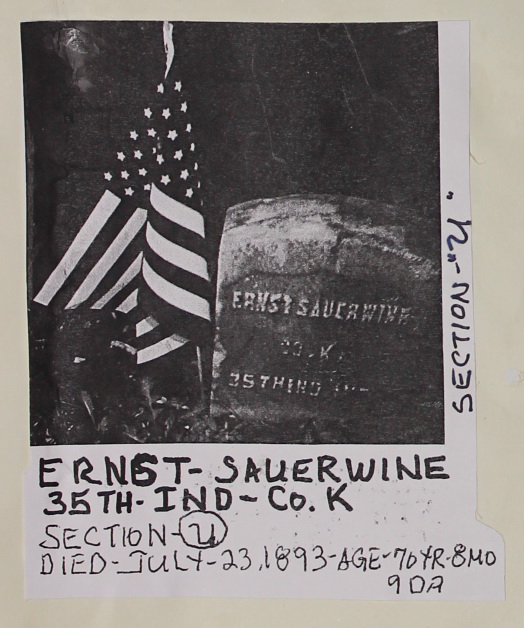 ERNST SAUERWINE
CO. K
35TH IND
SECTION-"U"
ERNST-SAUERWINE
35TH-IND-Co. K
SECTION-U
DIED-JULY-23,1893-AGE-70YR-8MO
9DA